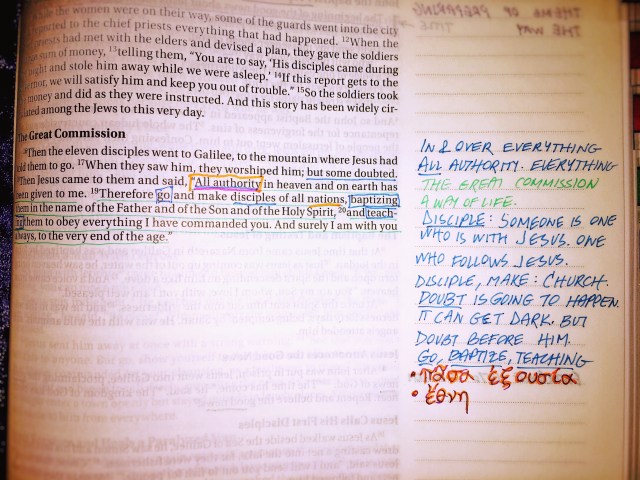 the women were on their way, some of the guards went into the city
reported to the chief priests everything that had happened. ¹²When the
priests had met with the elders and devised a plan, they gave the soldiers
sum of money, ¹³telling them, "You are to say, 'His disciples came during
night and stole him away while we were asleep.' ¹⁴If this report gets to the
we will satisfy him and keep you out of trouble." ¹⁵So the soldiers took
money and did as they were instructed. And this story has been widely cir-
among the Jews to this very day.
The Great Commission
¹⁶Then the eleven disciples went to Galilee, to the mountain where Jesus had
told them to go. ¹⁷When they saw him, they worshiped him; but some doubted.
¹⁸Then Jesus came to them and said, "All authority in heaven and on earth has
been given to me. ¹⁹Therefore go and make disciples of all nations, baptizing
them in the name of the Father and of the Son and of the Holy Spirit, ²⁰and teach-
ing them to obey everything I have commanded you. And surely I am with you
always, to the very end of the age."
IN & OVER EVERYTHING
ALL AUTHORITY. EVERYTHING
THE GREAT COMMISSION
A WAY OF LIFE.
DISCIPLE: SOMEONE IS ONE
WHO IS WITH JESUS. ONE
WHO FOLLOWS JESUS.
DISCIPLE, MAKE: CHURCH.
DOUBT IS GOING TO HAPPEN.
IT CAN GET DARK. BUT
DOUBT BEFORE HIM.
GO, BAPTIZE, TEACHING
• πᾶσα ἐξουσία
• ἔθνη